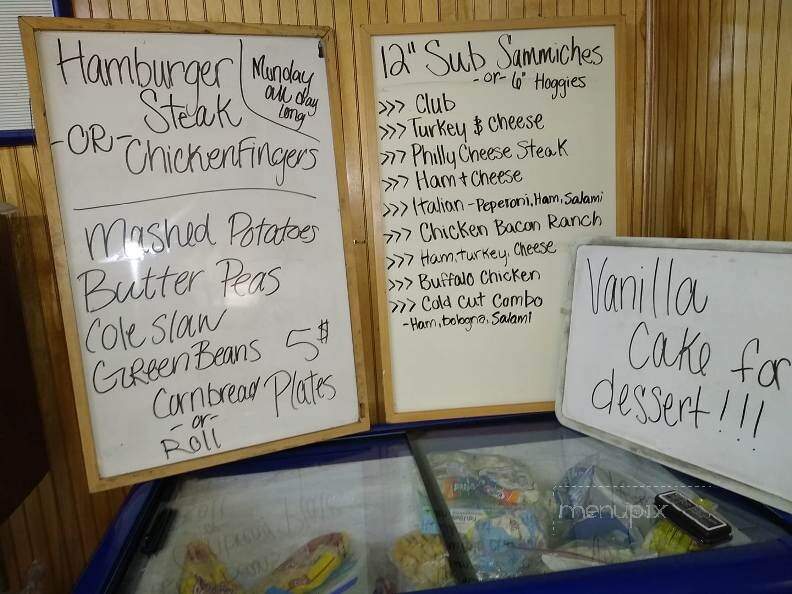 Hamburger
Steak
-OR-
Chicken Fingers
Munday
all day
long
Mashed Potatoes
Butter Peas
Cole slaw
Green Beans
Cornbread
-or-
Roll
5$
Plates
12" Sub Sammiches
-or- 6" Hoggies
>>> Club
>>> Turkey $ Cheese
>>> Philly Cheese Steak
>>> Ham + Cheese
>>> Italian - Peperoni, Ham, Salami
>>> Chicken Bacon Ranch
>>> Ham, turkey, Cheese
>>> Buffalo Chicken
>>> Cold Cut Combo
- Ham, bologna, Salami
Vanilla
Cake for
dessert!!!
menupix